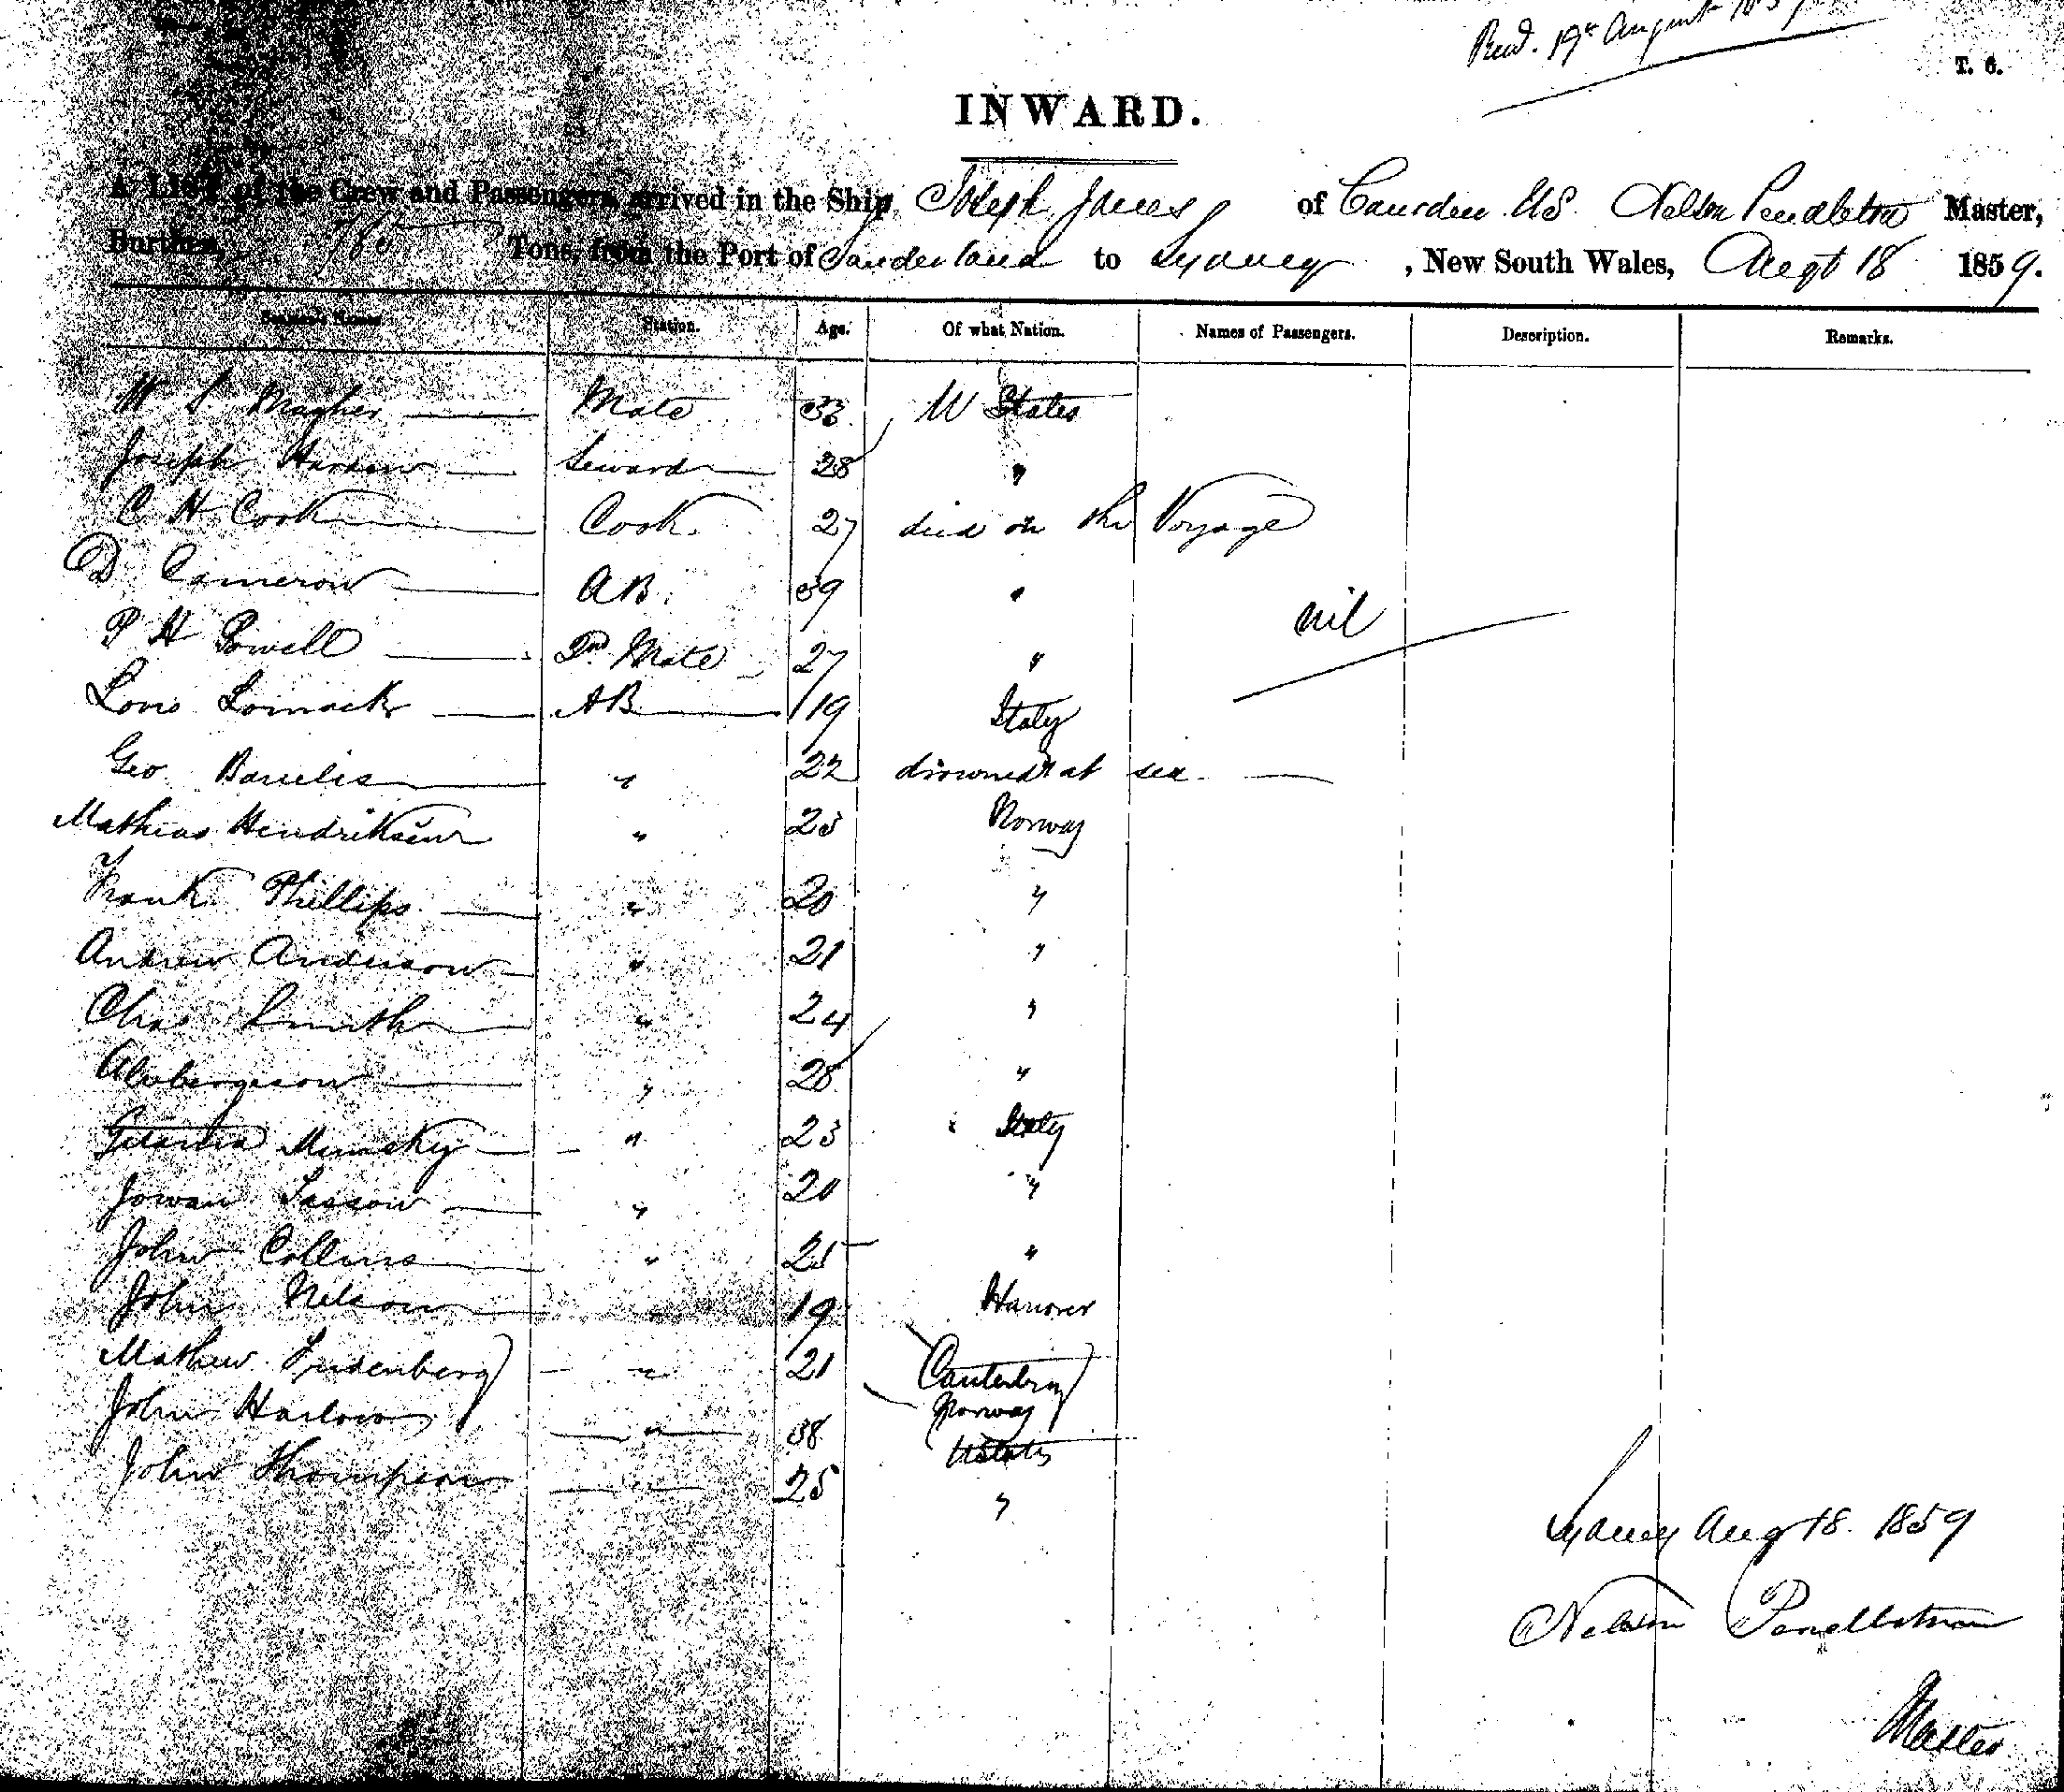 19th August
T. 6.
INWARD.
A LIST of the Crew and Passengers arrived in the Ship Joseph Jones of Camden US. Nelson Pendleton Master,
Burthen, Tons, from the Port of Sunderland to Sydney, New South Wales, Augt 18 1859.
Seamen's Names. Station. Age. Of what Nation. Names of Passengers. Description. Remarks.
W S Mate 33 U States
Joseph Steward 28 "
C H Cook Cook. 27 died on the Voyage
D Cameron AB. 39 "
nil
P H Powell 2nd Mate 27 "
Louis AB 19 Italy
Geo. " 22 drowned at sea.
Mathias Hendriksen " 23 Norway
Frank Phillips " 20 "
Andrew Anderson " 21 "
Chas Smith " 24 "
" 28 "
" 23 Italy
Jowan " 20 "
John Collins " 25 "
John Nelson " 19 Hanover
Mathew " 21 Canterbury
John Harlow " 38 Norway
U States
John Thompson 25 "
Sydney Aug 18. 1859
Nelson Pendleton
Master